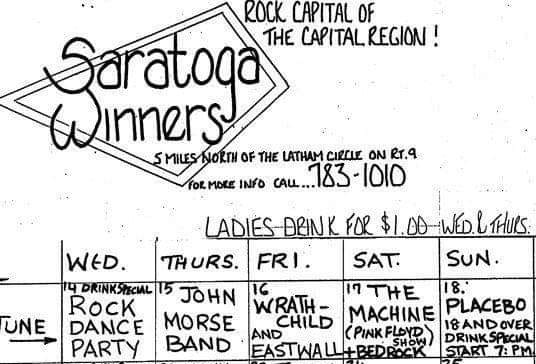 ROCK CAPITAL OF
THE CAPITAL REGION!
Saratoga
Winners
5 MILES NORTH OF THE LATHAM CIRCLE ON RT.9
FOR MORE INFO CALL...783-1010
LADIES DRINK FOR $1.00 WED. & THURS.
WED. THURS. FRI. SAT. SUN.
JUNE
14 DRINK SPECIAL
ROCK
DANCE
PARTY
15 JOHN
MORSE
BAND
16
WRATH-
CHILD
AND
EASTWALL
17 THE
MACHINE
(PINK FLOYD)
SHOW
+BEDROCK
18.
PLACEBO
18 AND OVER
DRINK SPECIAL
START 7:PM
25